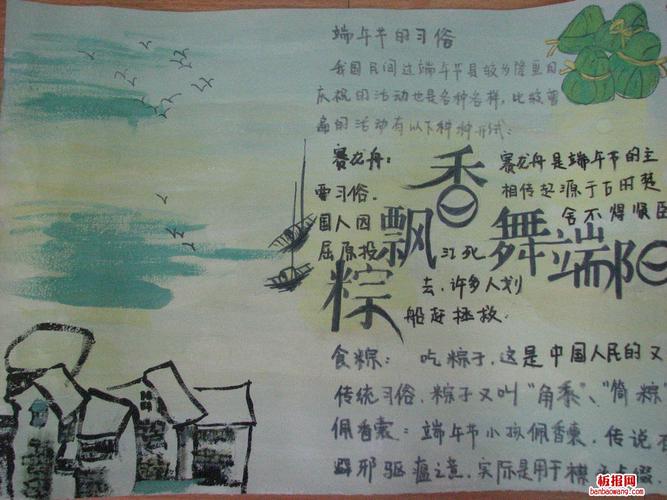 端午节的习俗
我国民间过端午节是较为隆重的
庆祝的活动也是各种各样，比较普
遍的活动有以下种种形式：
粽飘香舞端阳
赛龙舟：赛龙舟是端午节的主
要习俗。相传起源于古时楚
国人因舍不得贤臣
屈原投江死
去，许多人划
船赶拯救。
食粽：吃粽子，这是中国人民的又
传统习俗，粽子又叫“角黍”、“筒粽
佩香囊：端午节小孩佩香囊，传说有
避邪驱瘟之意，实际是用于襟头点缀
板报网
banbaowang.com